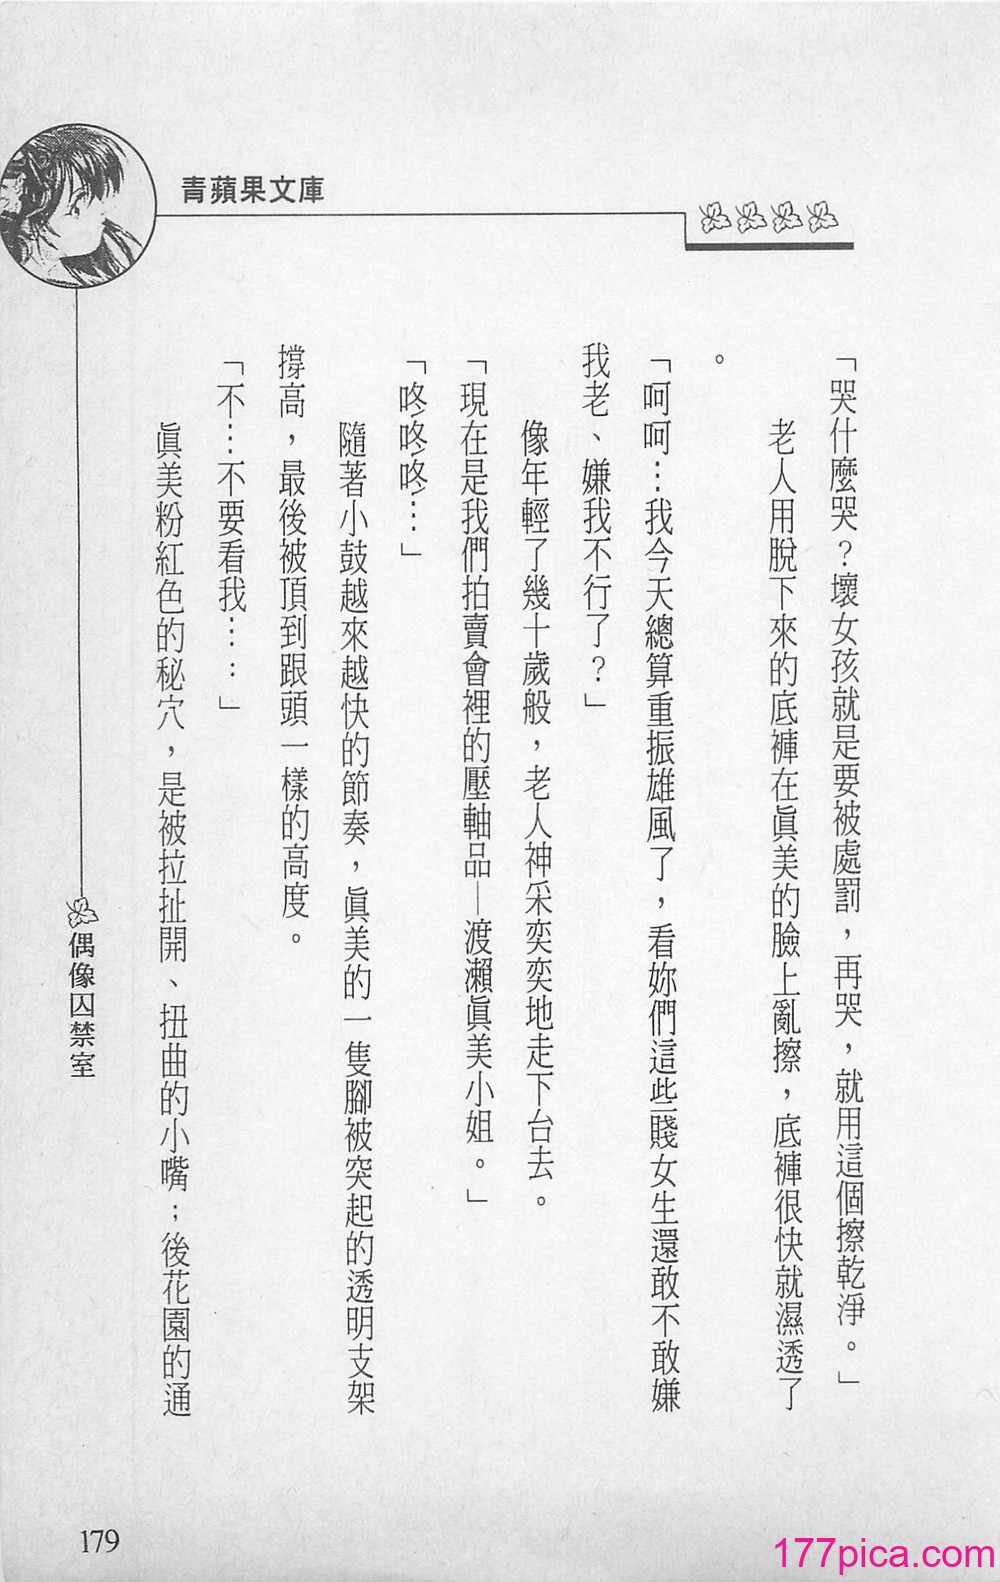 青蘋果文庫
「哭什麼哭？壞女孩就是要被處罰，再哭，就用這個擦乾淨。」
老人用脫下來的底褲在眞美的臉上亂擦，底褲很快就濕透了
。
「呵呵…我今天總算重振雄風了，看妳們這些賤女生還敢不敢嫌
我老、嫌我不行了？」
像年輕了幾十歲般，老人神采奕奕地走下台去。
「現在是我們拍賣會裡的壓軸品—渡瀨眞美小姐。」
「咚咚咚…」
隨著小鼓越來越快的節奏，眞美的一隻腳被突起的透明支架
撐高，最後被頂到跟頭一樣的高度。
「不…不要看我……」
眞美粉紅色的秘穴，是被拉扯開、扭曲的小嘴；後花園的通
偶像囚禁室
179
177pica.com